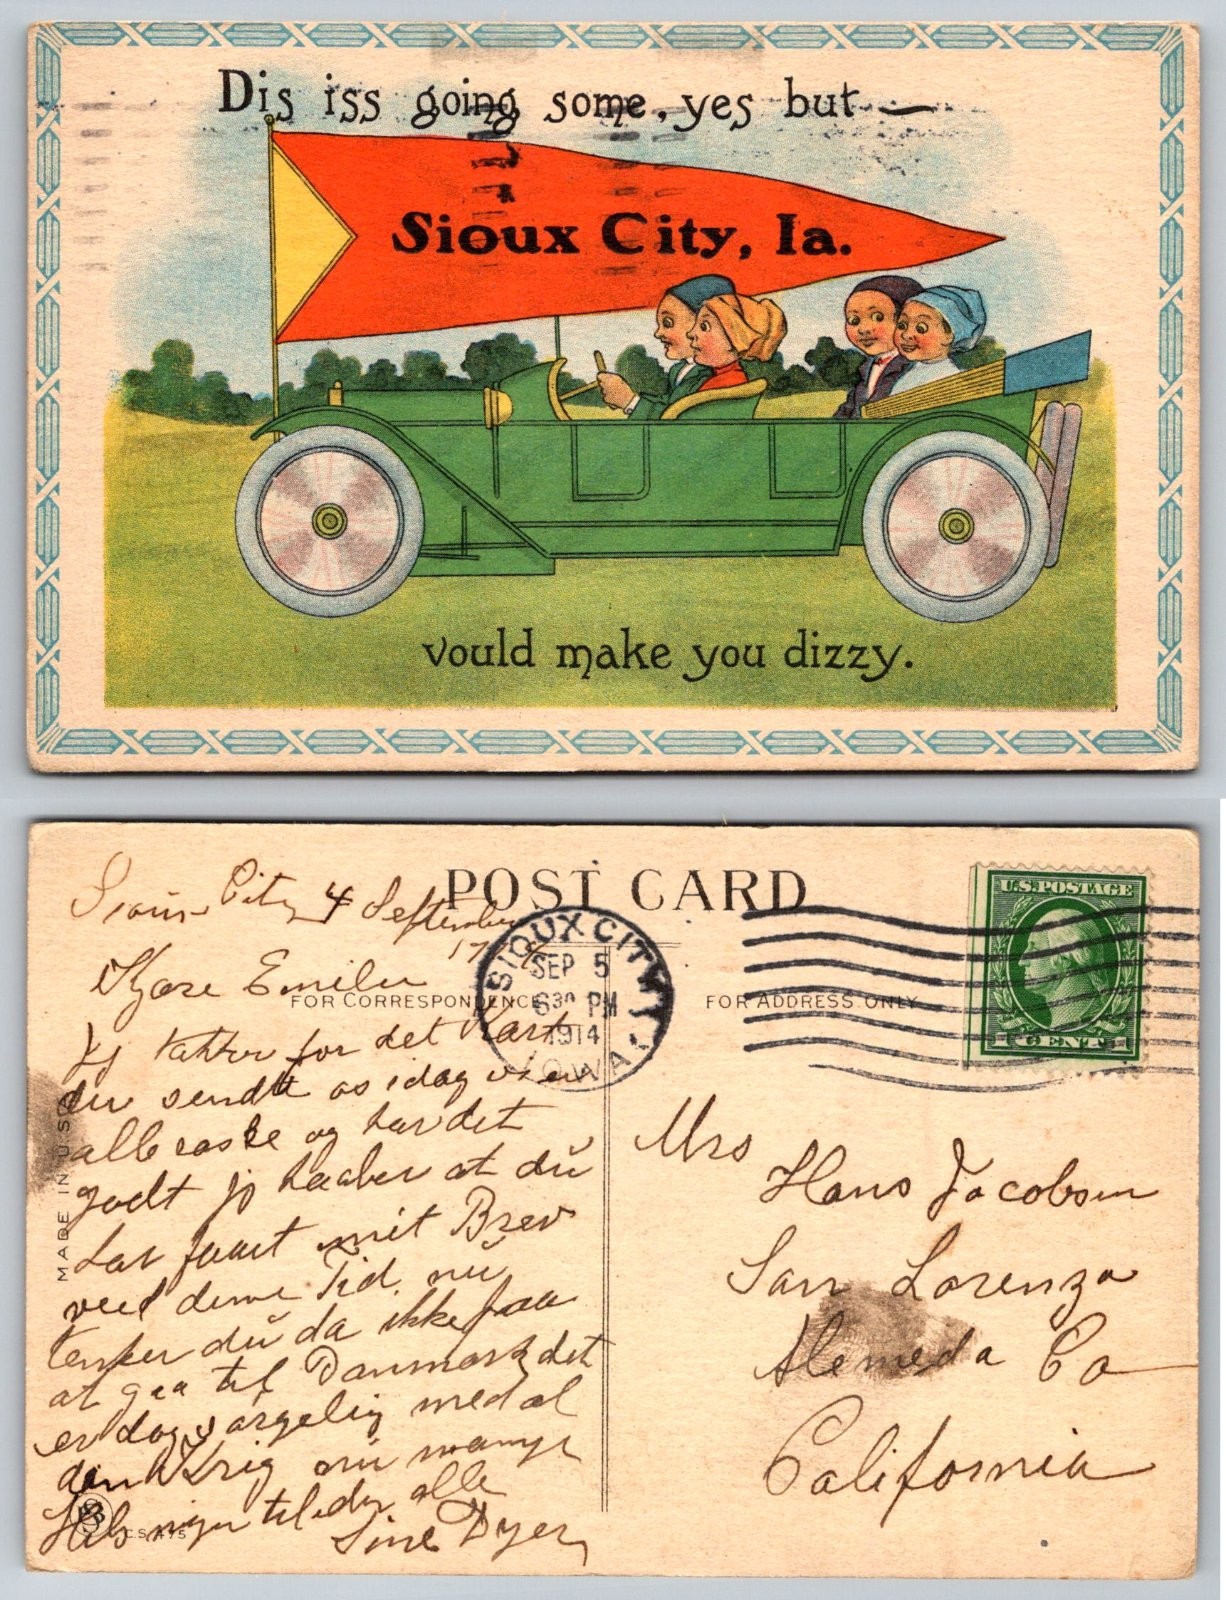 Dis iss going some, yes but —
Sioux City, Ia.
vould make you dizzy.
POST CARD
Sioux City 4 September
Kjære Emilie
FOR CORRESPONDENCE
FOR ADDRESS ONLY
SIOUX CITY
SEP 5
6 30 PM
1914
IOWA.
U.S. POSTAGE
1 CENT 1
MADE IN U.S.A.
Jj takker for det Kart
du sendte os idag vi er
alle raske og har det
godt jj haaber at du
har faaet mit Brev
ved denne Tid. nu
tenker du da ikke paa
at gaa til Danmark det
er dog sørgelig med al
den Krig nu mange
Hilsninger til dig alle
Sine Dyer
C.S. 475
Mrs
Hans Jacobsen
San Lorenzo
Alemeda Co
California